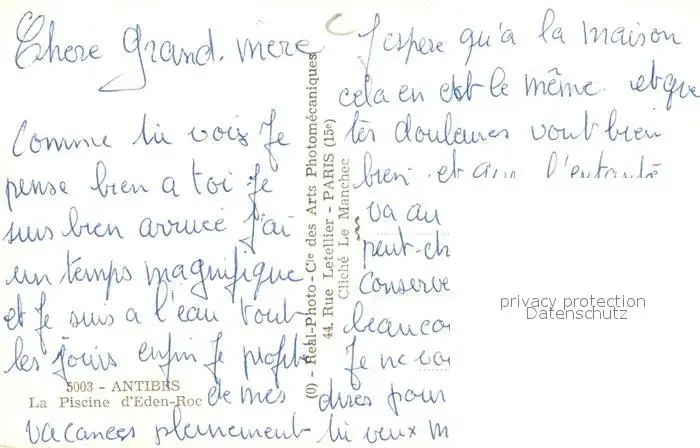 Chere Grand. mère
Comme tu vois Je
pense bien a toi Je
suis bien arrivée J'ai
un temps magnifique
et Je suis a l'eau tout
les jours enfin Je profite
de mes
vacances pleinement
5003 - ANTIBES
La Piscine d'Eden-Roc
(O) - Réal-Photo - Cie des Arts Photomécaniques
44, Rue Letellier - PARIS (15e)
Cliché Le Manchec
J'espere qu'a la maison
cela en est le même. et que
tes douleures vont bien
bien et que l'entente
va au
peut-ch
Conserve
beaucou
Je ne
dires pour
tu veux m
privacy protection
Datenschutz